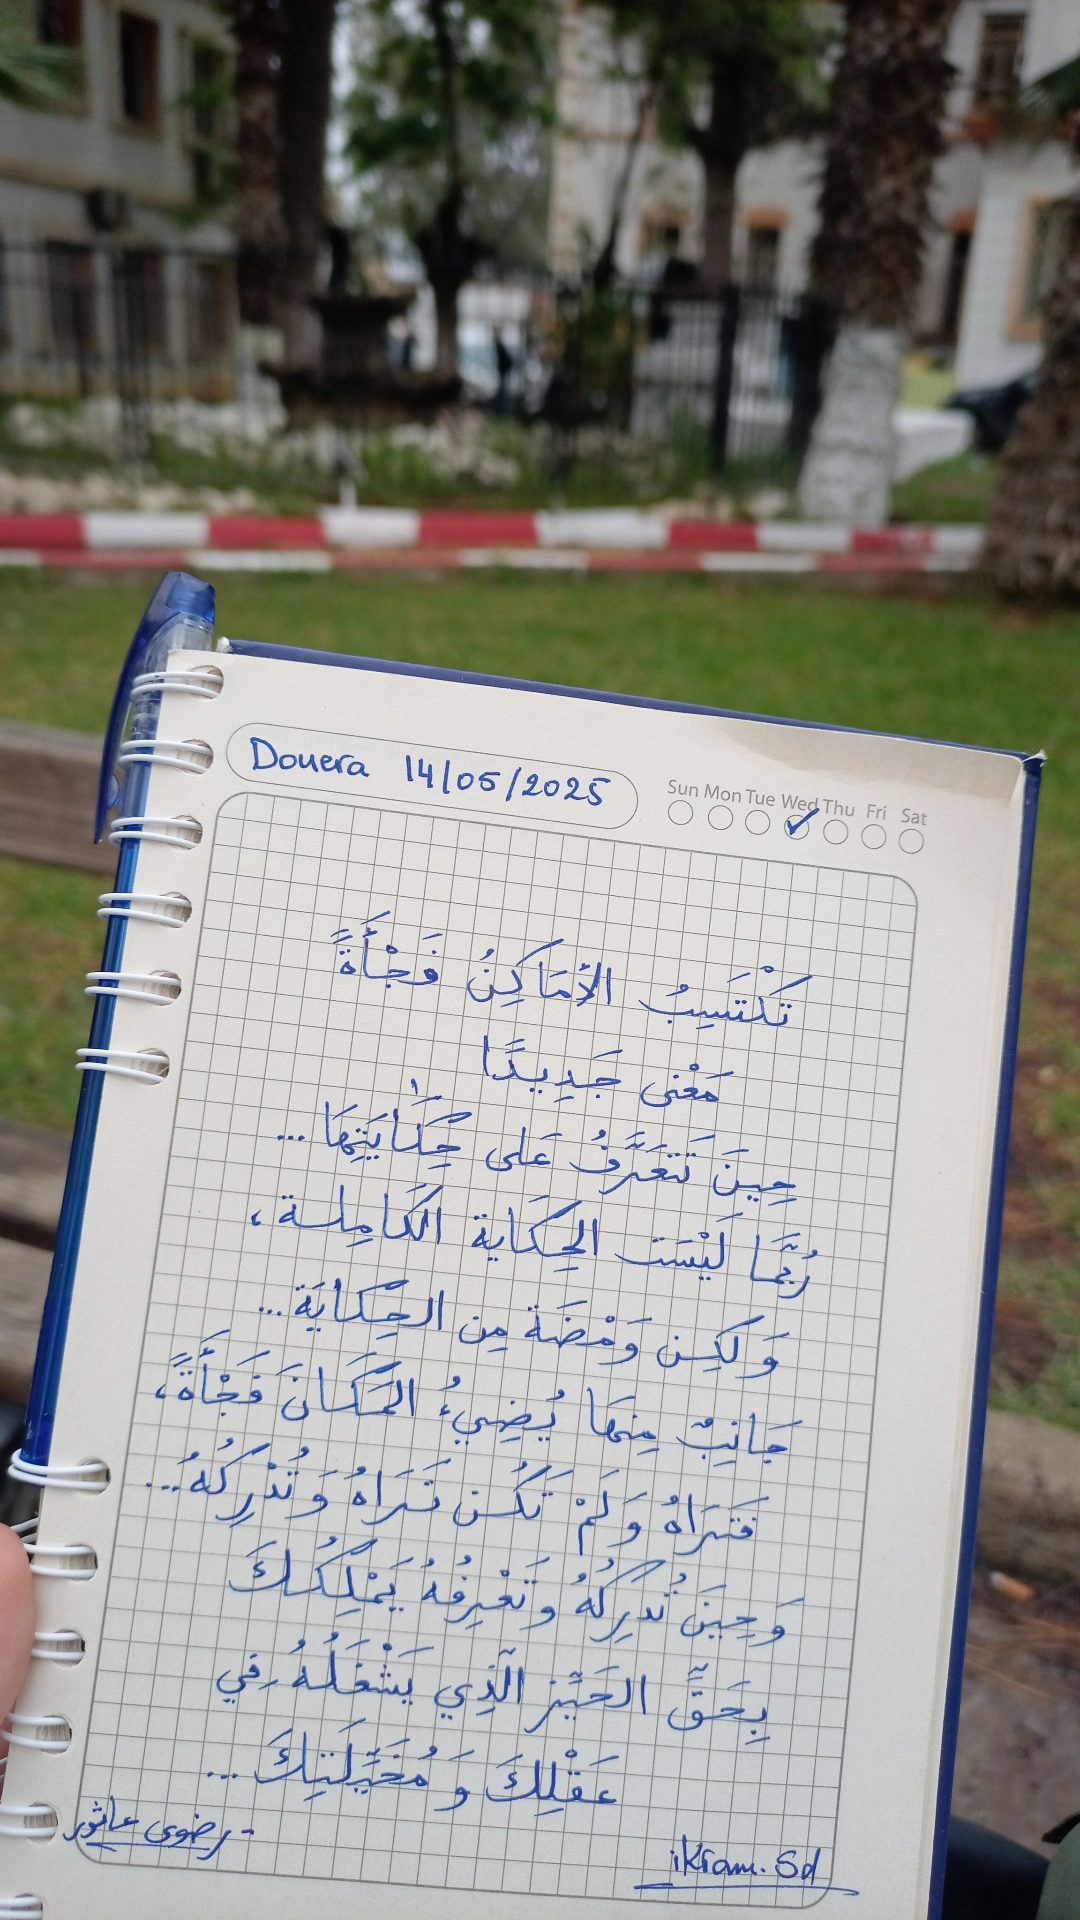 Douera 14/05/2025
Sun Mon Tue Wed Thu Fri Sat
تَكْتَسِبُ الأَمَاكِنُ فَجْأَةً
مَعْنى جَدِيدًا
حِينَ تَتَعَرَّفُ عَلى حِكَايَتِهَا ...
رُبَّمَا لَيْسَت الحِكَاية الكَامِلة ،
وَ لكِن وَمْضَة مِن الحِكايَة ...
جَانِبٌ مِنهَا يُضِيءُ المَكَانَ فَجْأَةً،
فَتَرَاهُ وَ لَمْ تَكُن تَرَاهُ وَ تُدْرِكُهُ ...
وَ حِينَ تُدرِكُهُ وَ تَعْرِفُهُ يَمْلِكُكَ
بِحَقِّ الحَيِّز الّذِي يَشْغَلُهُ فِي
عَقْلِكَ وَ مُخَيِّلَتِكَ ...
- رضوى عاشور
iKram. Sd